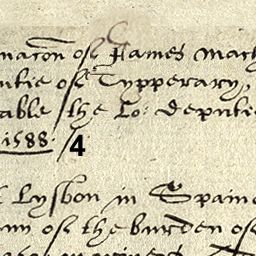 nacõn of James Mach
ntie of Typperary,
able the Lo: deputie
1588 / 4
Lysbon in Spaine
nn of the burden of